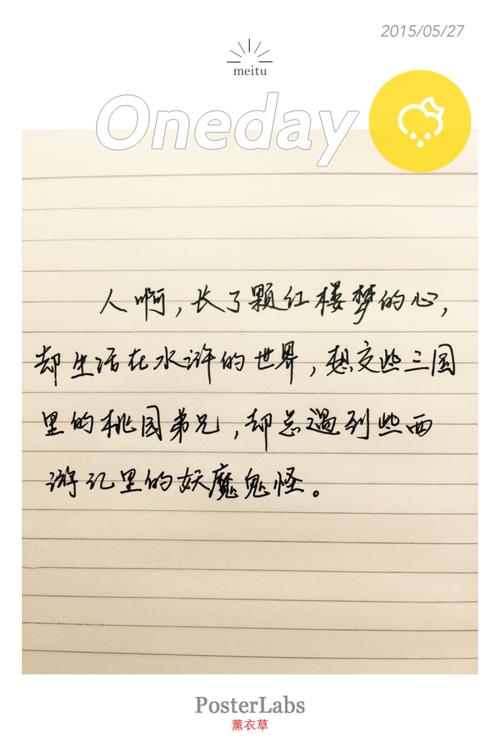 2015/05/27
meitu
Oneday
人啊，长了颗红楼梦的心，
却生活在水浒的世界，想交些三国
里的桃园弟兄，却总遇到些西
游记里的妖魔鬼怪。
PosterLabs
薰衣草